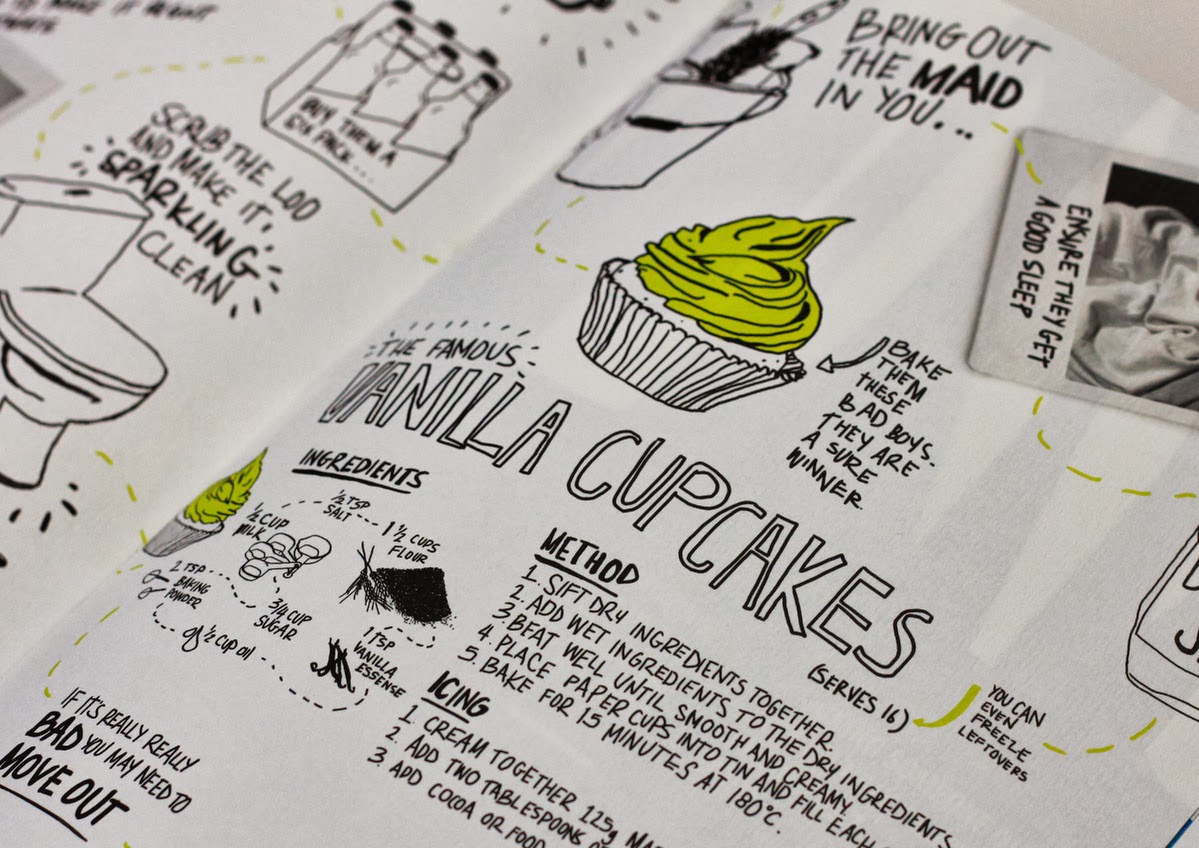 TO MAKE IT
SCRUB THE LOO
AND MAKE IT,
SPARKLING
CLEAN
BUY THEM A
SIX PACK...
BRING OUT
THE MAID
IN YOU...
ENSURE THEY GET
A GOOD SLEEP
BAKE
THEM
THESE
BAD BOYS.
THEY ARE
A SURE
WINNER.
THE FAMOUS
VANILLA CUPCAKES
(SERVES 16)
YOU CAN
EVEN
FREEZE
LEFTOVERS
INGREDIENTS
1/2 TSP
SALT
1/2 CUP
MILK
1 1/2 CUPS
FLOUR
2 TSP
BAKING
POWDER
3/4 CUP
SUGAR
1/2 CUP OIL
1 TSP
VANILLA
ESSENSE
METHOD
1. SIFT DRY INGREDIENTS TOGETHER.
2. ADD WET INGREDIENTS TO THE DRY INGREDIENTS
3. BEAT WELL UNTIL SMOOTH AND CREAMY.
4. PLACE PAPER CUPS INTO TIN AND FILL EACH
5. BAKE FOR 15 MINUTES AT 180°C.
ICING
1. CREAM TOGETHER 125g
2. ADD TWO TABLESPOONS
3. ADD COCOA OR
IF IT'S REALLY REALLY
BAD YOU MAY NEED TO
MOVE OUT